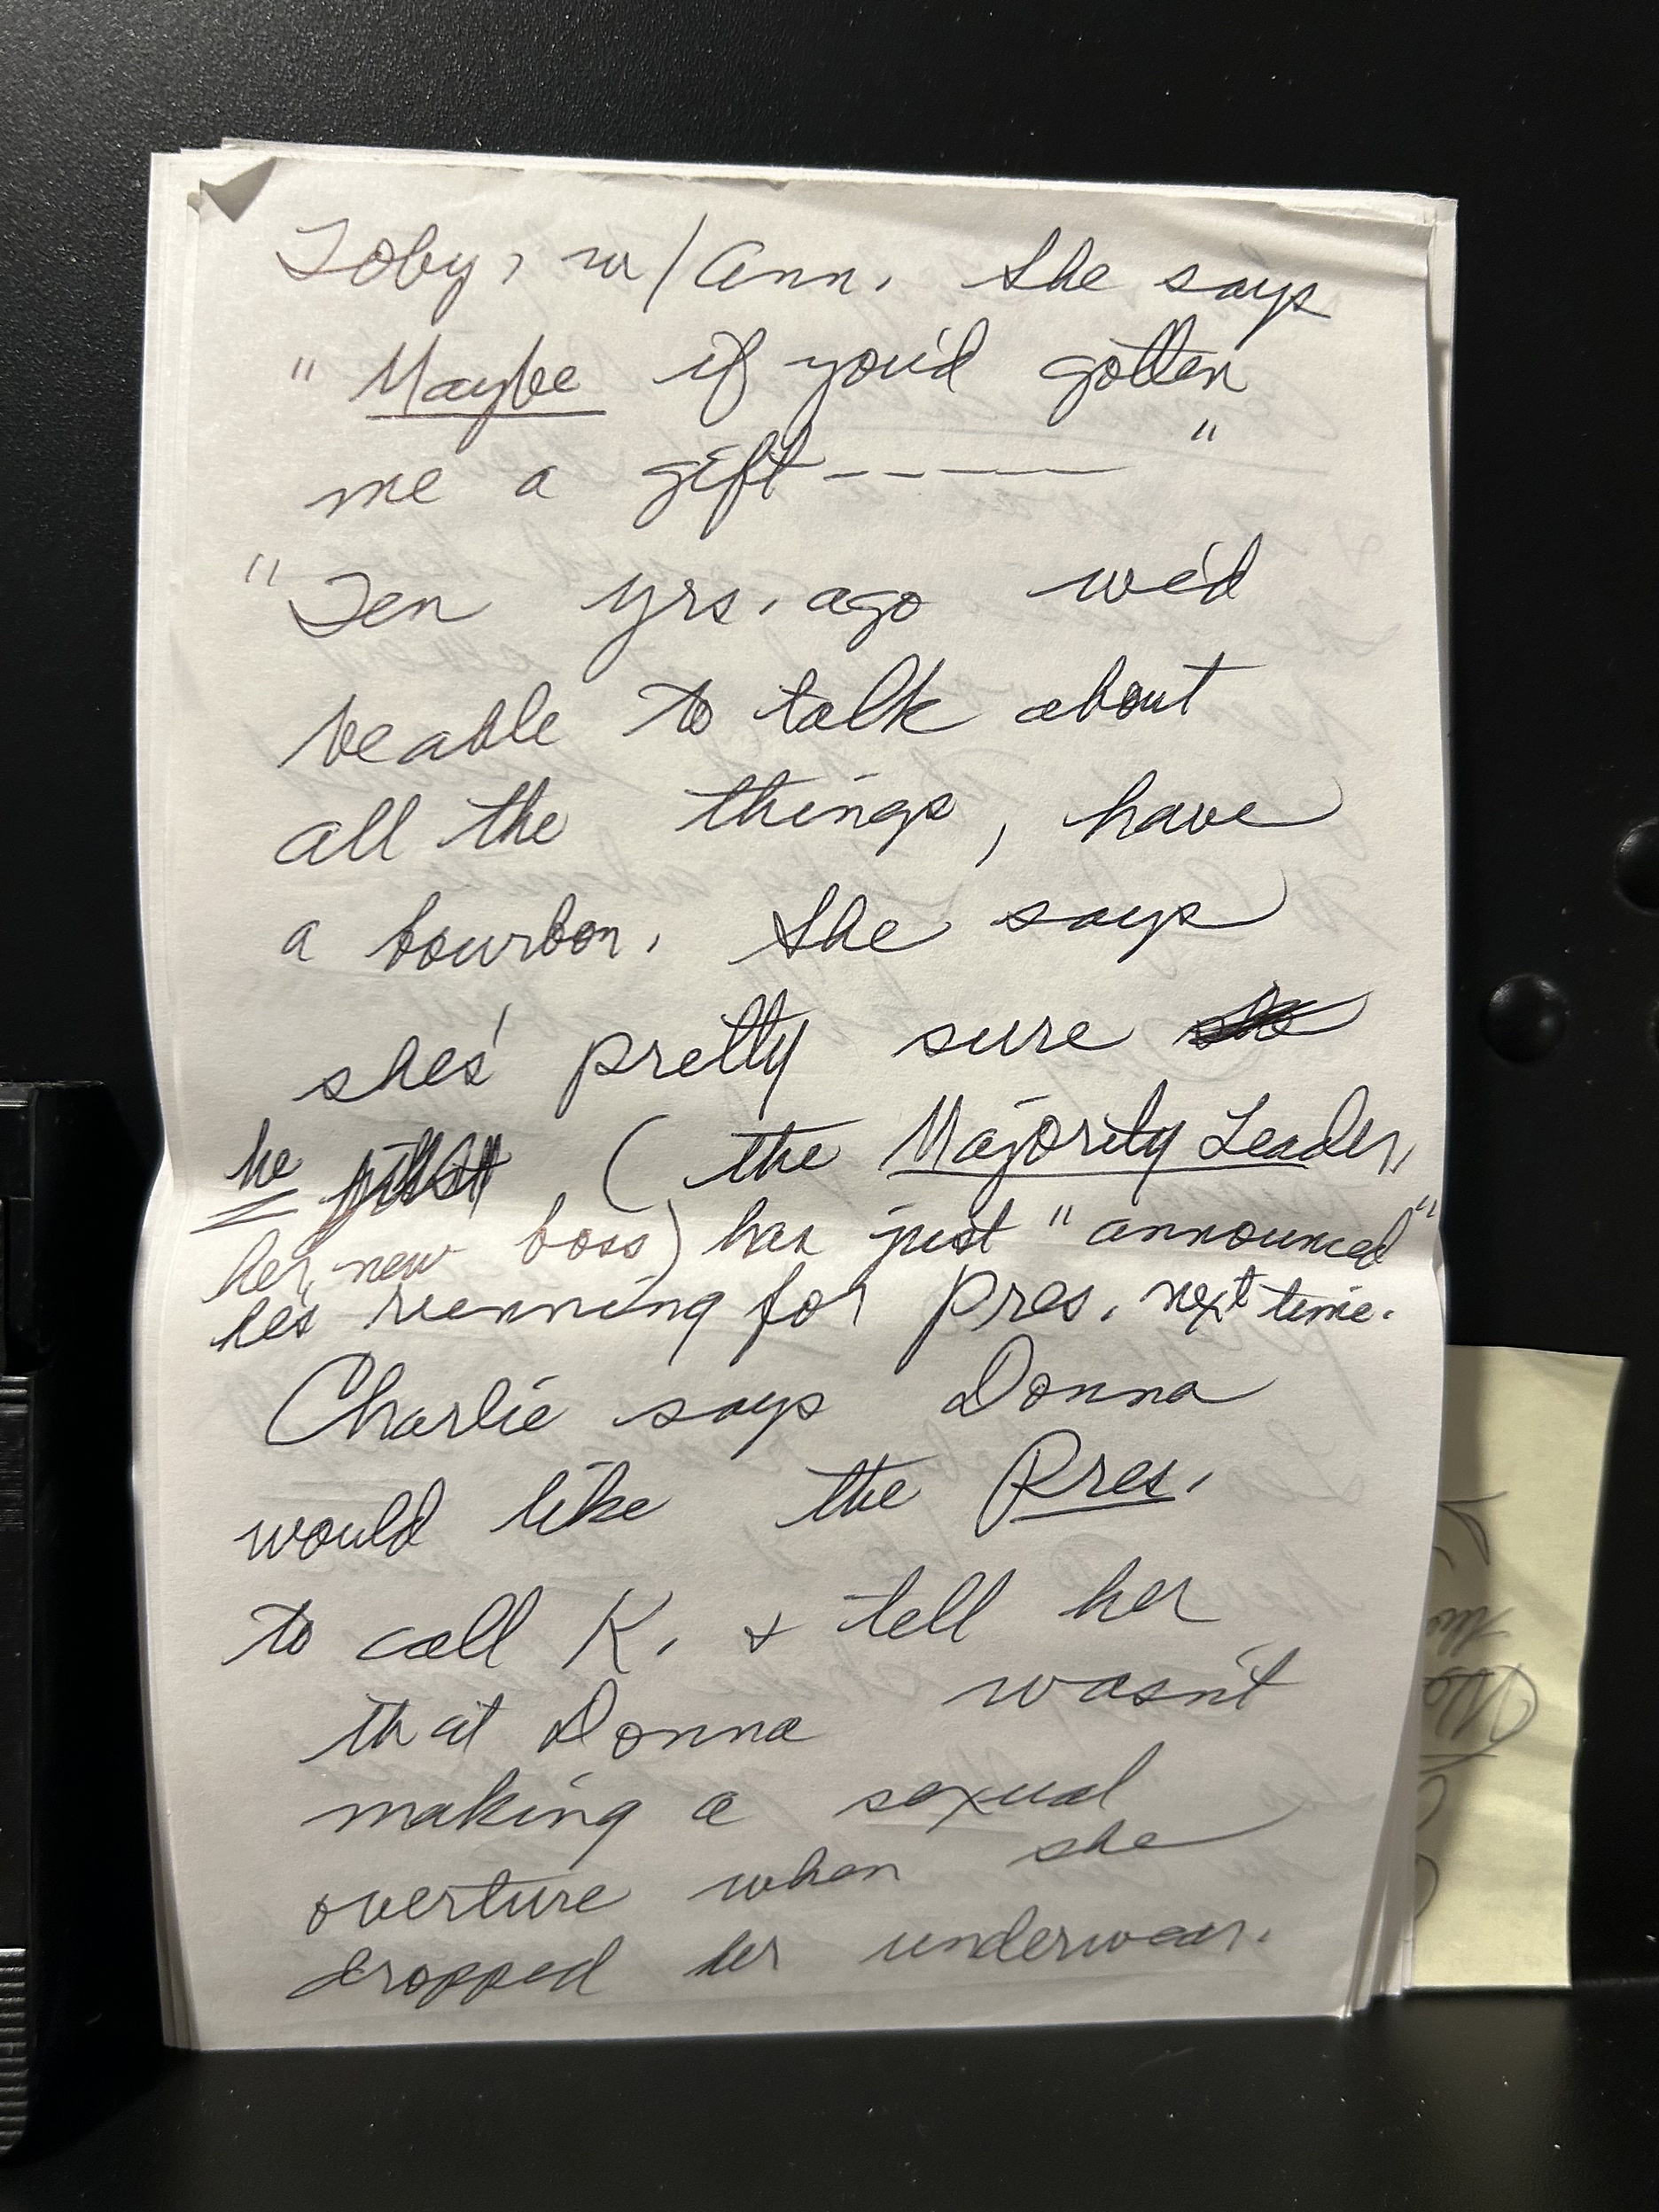 Toby, w/Ann. She says
"Maybe if you'd gotten
me a gift-----"
"Ten yrs. ago we'd
be able to talk about
all the things, have
a bourbon. She says
she's pretty sure
he (the Majority Leader,
her new boss) has just "announced"
he's running for Pres. next time.
Charlie says Donna
would like the Pres.
to call K. & tell her
that Donna wasn't
making a sexual
overture when she
dropped her underwear.